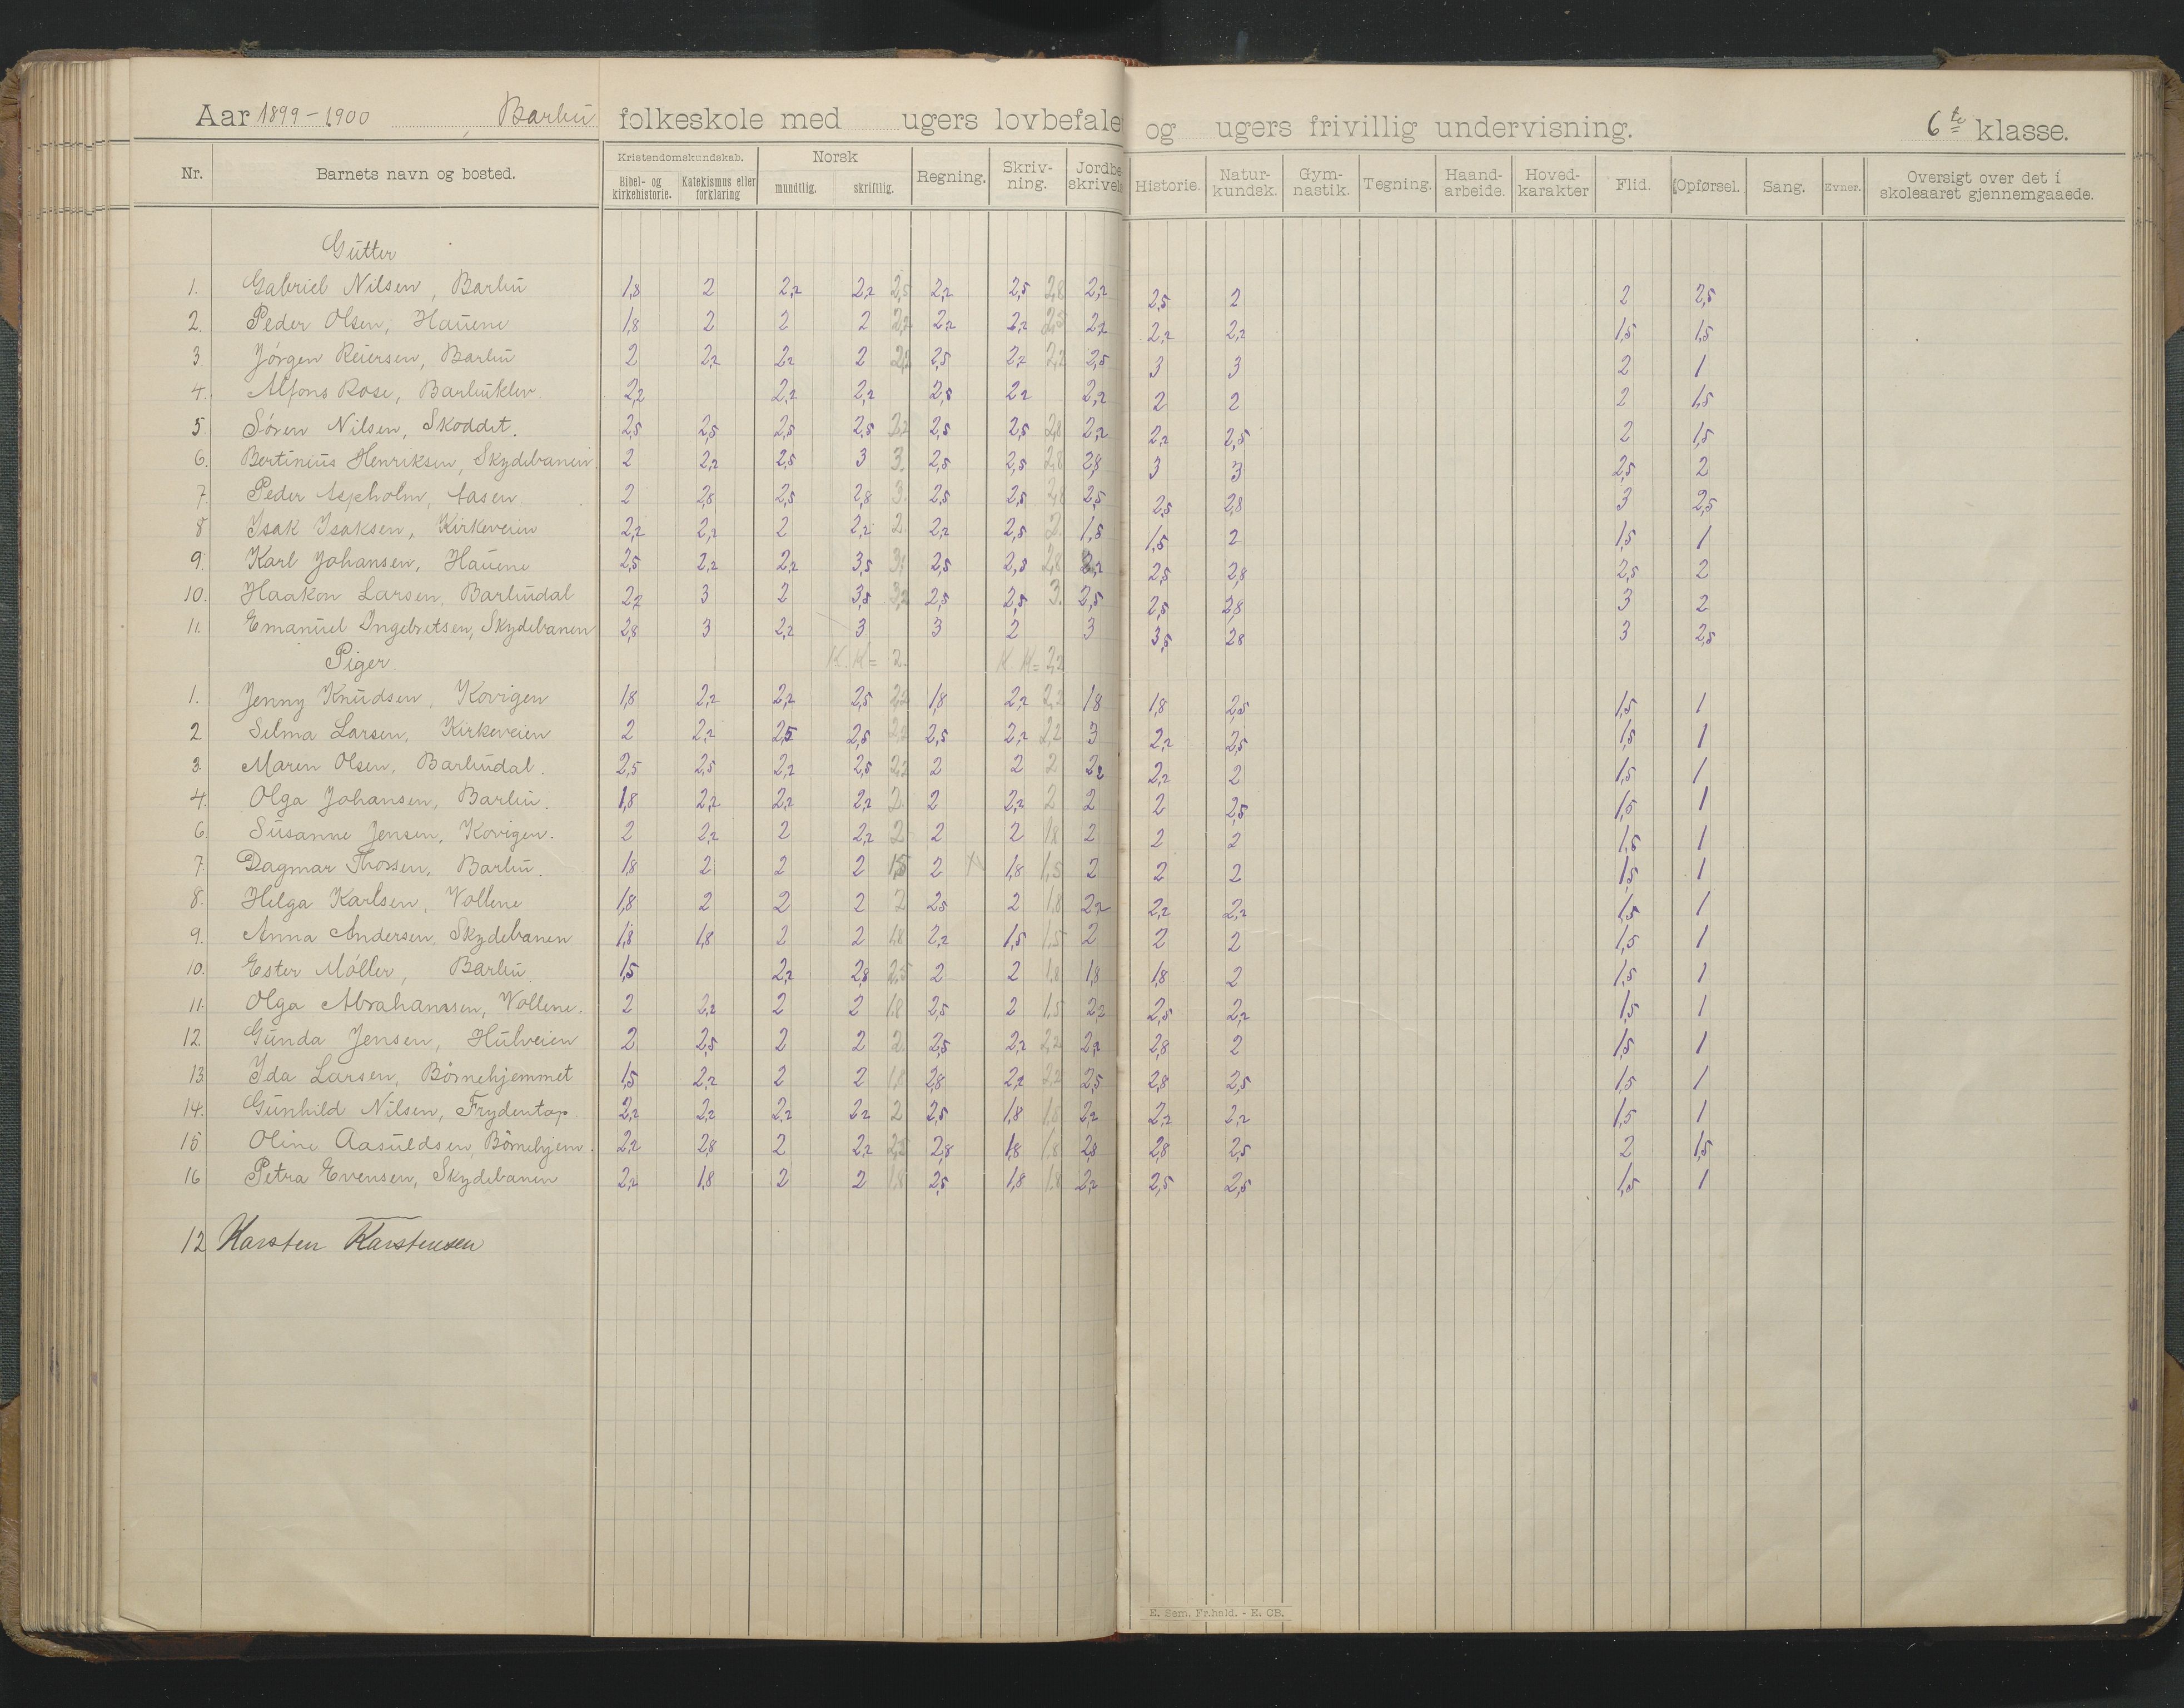 Aar 1899-1900 Barbu folkeskole med ugers lovbefale og ugers frivillig undervisning. 6te klasse.
Nr. Barnets navn og bosted. Kristendomskundskab. Bibel- og kirkehistorie. Katekismus eller forklaring Norsk mundtlig. skriftlig. Regning. Skriv-ning. Jordbe skrivels Historie. Natur-kundsk. Gym-nastik. Tegning. Haand-arbeide. Hoved-karakter Flid. Opførsel. Sang. Evner. Oversigt over det i skoleaaret gjennemgaaede.
Gutter
1. Gabriel Nilsen, Barbu 1,8 2 2,2 2,2 2,5 2,2 2,5 2,8 2,2 2,5 2 2 2,5
2. Peder Olsen, Hauene 1,8 2 2 2 2,2 2,2 2,2 2,5 2,2 2,2 2,2 1,5 1,5
3. Jörgen Reiersen, Barbu 2 2,2 2,2 2 2,8 2,5 2,2 2,2 2,5 3 3 2 1
4. Alfons Rose, Barbuklev. 2,2 2,2 2,2 2,5 2,2 2,2 2 2 2 1,5
5. Sören Nilsen, Skoddet. 2,5 2,5 2,5 2,5 3,2 2,5 2,5 2,8 2,2 2,2 2,5 2 1,5
6. Bertinius Henriksen, Skydebanen. 2 2,2 2,5 3 3. 2,5 2,5 2,8 2,8 3 3 2,5 2
7. Peder Aspholm, Aasen 2 2,8 2,5 2,8 3. 2,5 2,5 2,8 2,5 2,5 2,8 3 2,5
8 Isak Isaksen, Kirkeveien 2,2 2,2 2 2,2 2. 2,2 2,5 2. 1,5 1,5 2 1,5 1
9. Karl Johansen, Hauene 2,5 2,2 2,2 3,5 3, 2,5 2,5 2,8 2,2 2,5 2,8 2,5 2
10. Haakon Larsen, Barbudal 2,2 3 2 3,5 3,2 2,5 2,5 3. 2,5 2,5 2,8 3 2
11. Emanuel Ingebretsen, Skydebanen 2,8 3 2,2 3 3 2 3 3,5 2,8 3 2,5
Piger. K. K = 2. K. K = 2,2
1. Jenny Knudsen, Kovigen 1,8 2,2 2,2 2,5 2,2 1,8 2,2 2,2 1,8 1,8 2,5 1,5 1
2 Selma Larsen, Kirkeveien 2 2,2 2,5 2,5 2,2 2,5 2,2 2,2 3 2,2 2,5 1,5 1
3. Maren Olsen, Barbudal. 2,5 2,5 2,2 2,5 2,2 2 2 2 2,2 2,2 2 1,5 1
4. Olga Johansen, Barbu. 1,8 2,2 2,2 2,2 2. 2 2,2 2 2 2 2,5 1,5 1
6. Susanne Jensen, Kovigen. 2 2,2 2 2,2 2 2 2 1,8 2 2 2 1,5 1
7. Dagmar Thorsen, Barbu. 1,8 2 2 2 1,5 2 1,8 1,5 2 2 2 1,5 1
8. Helga Karlsen, Vollene 1,8 2 2 2 2 2,5 2 1,8 2,2 2,2 2,2 1,5 1
9. Anna Andersen, Skydebanen 1,8 1,8 2 2 1,8 2,2 1,5 1,5 2 2 2 1,5 1
10. Ester Möller, Barbu 1,5 2,2 2,8 2,5 2 2 1,8 1,8 1,8 2 1,5 1
11. Olga Abrahamsen, Vollene. 2 2,2 2 2 1,8 2,5 2 1,5 2,2 2,5 2,2 1,5 1
12. Gunda Jensen, Hulveien 2 2,5 2 2 2 2,5 2,2 2,2 2,2 2,8 2 1,5 1
13. Ida Larsen, Börnehjemmet 1,5 2,2 2 2 1,8 2,8 2,2 2,2 2,5 2,8 2,5 1,5 1
14. Gunhild Nilsen, Frydentop. 2,2 2,2 2,2 2,2 2 2,5 1,8 1,8 2,2 2,2 2,2 1,5 1
15 Oline Aasuldsen, Börnehjem. 2,2 2,8 2 2,2 2,5 2,8 1,8 1,8 2,8 2,8 2,5 2 1,5
16 Petra Evensen, Skydebanen 2,2 1,8 2 2 1,8 2,5 1,8 1,8 2,2 2,5 2,5 1,5 1
12 Karsten Karstensen
E. Sem, Fr.hald. - E. CB.